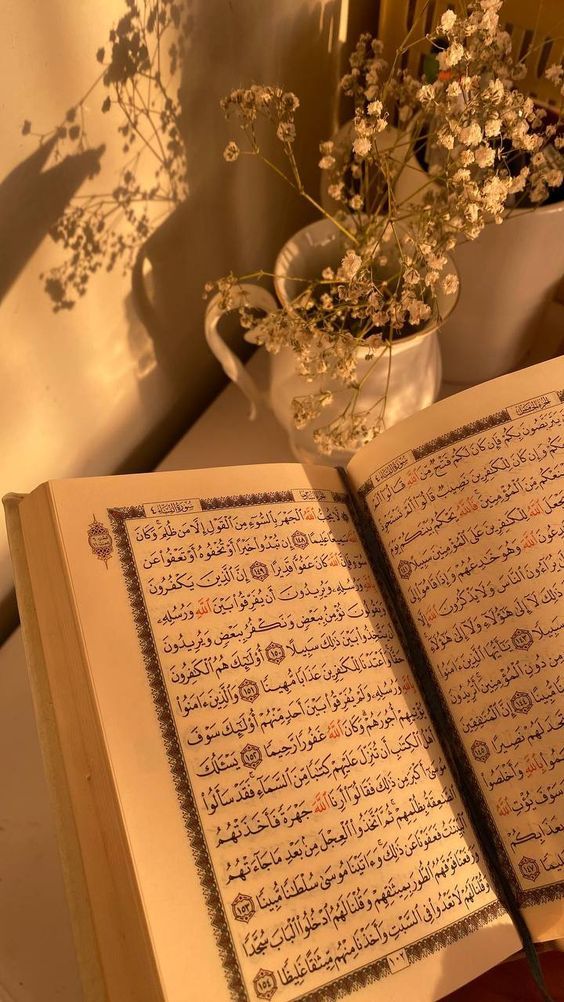 الجزء الخامس
سورة النساء
يَتَرَبَّصُونَ بِكُمْ فَإِن كَانَ لَكُمْ فَتْحٌ مِّنَ ٱللَّهِ قَالُوٓا۟
وَإِن كَانَ لِلْكَـٰفِرِينَ نَصِيبٌ قَالُوٓا۟ أَلَمْ نَسْتَحْوِذْ
مِّنَ ٱلْمُؤْمِنِينَ فَٱللَّهُ يَحْكُمُ بَيْنَكُمْ يَوْمَ
ٱللَّهُ لِلْكَـٰفِرِينَ عَلَى ٱلْمُؤْمِنِينَ سَبِيلًا ١٤١
ٱللَّهَ وَهُوَ خَـٰدِعُهُمْ وَإِذَا قَامُوٓا۟
يُرَآءُونَ ٱلنَّاسَ وَلَا يَذْكُرُونَ ٱللَّهَ
ذَٰلِكَ لَآ إِلَىٰ هَـٰٓؤُلَآءِ وَلَآ إِلَىٰ هَـٰٓؤُلَآءِ
سَبِيلًا ١٤٣ يَـٰٓأَيُّهَا ٱلَّذِينَ ءَامَنُوا۟
مِن دُونِ ٱلْمُؤْمِنِينَ أَتُرِيدُونَ
مُّبِينًا ١٤٤ إِنَّ ٱلْمُنَـٰفِقِينَ
تَجِدَ لَهُمْ نَصِيرًا ١٤٥
بِٱللَّهِ وَأَخْلَصُوا۟
سَوْفَ يُؤْتِ ٱللَّهُ
بِعَذَابِكُمْ
عَلِيمًا ١٤٧
سورة النساء
ٱللَّهُ ٱلْجَهْرَ بِٱلسُّوٓءِ مِنَ ٱلْقَوْلِ إِلَّا مَن ظُلِمَ وَكَانَ
سَمِيعًا عَلِيمًا ١٤٨ إِن تُبْدُوا۟ خَيْرًا أَوْ تُخْفُوهُ أَوْ تَعْفُوا۟ عَن
ٱللَّهَ كَانَ عَفُوًّا قَدِيرًا ١٤٩ إِنَّ ٱلَّذِينَ يَكْفُرُونَ
وَرُسُلِهِۦ وَيُرِيدُونَ أَن يُفَرِّقُوا۟ بَيْنَ ٱللَّهِ وَرُسُلِهِۦ
نُؤْمِنُ بِبَعْضٍ وَنَكْفُرُ بِبَعْضٍ وَيُرِيدُونَ
أَن يَتَّخِذُوا۟ بَيْنَ ذَٰلِكَ سَبِيلًا ١٥٠ أُو۟لَـٰٓئِكَ هُمُ ٱلْكَـٰفِرُونَ
وَأَعْتَدْنَا لِلْكَـٰفِرِينَ عَذَابًا مُّهِينًا ١٥١ وَٱلَّذِينَ ءَامَنُوا۟
وَرُسُلِهِۦ وَلَمْ يُفَرِّقُوا۟ بَيْنَ أَحَدٍ مِّنْهُمْ أُو۟لَـٰٓئِكَ سَوْفَ
يُؤْتِيهِمْ أُجُورَهُمْ وَكَانَ ٱللَّهُ غَفُورًا رَّحِيمًا ١٥٢ يَسْـَٔلُكَ
أَهْلُ ٱلْكِتَـٰبِ أَن تُنَزِّلَ عَلَيْهِمْ كِتَـٰبًا مِّنَ ٱلسَّمَآءِ فَقَدْ سَأَلُوا۟
مُوسَىٰٓ أَكْبَرَ مِن ذَٰلِكَ فَقَالُوٓا۟ أَرِنَا ٱللَّهَ جَهْرَةً فَأَخَذَتْهُمُ
ٱلصَّـٰعِقَةُ بِظُلْمِهِمْ ثُمَّ ٱتَّخَذُوا۟ ٱلْعِجْلَ مِنۢ بَعْدِ مَا جَآءَتْهُمُ
ٱلْبَيِّنَـٰتُ فَعَفَوْنَا عَن ذَٰلِكَ وَءَاتَيْنَا مُوسَىٰ سُلْطَـٰنًا مُّبِينًا ١٥٣
وَرَفَعْنَا فَوْقَهُمُ ٱلطُّورَ بِمِيثَـٰقِهِمْ وَقُلْنَا لَهُمُ ٱدْخُلُوا۟ ٱلْبَابَ سُجَّدًا
وَقُلْنَا لَهُمْ لَا تَعْدُوا۟ فِى ٱلسَّبْتِ وَأَخَذْنَا مِنْهُم مِّيثَـٰقًا غَلِيظًا ١٥٤
١٠٢